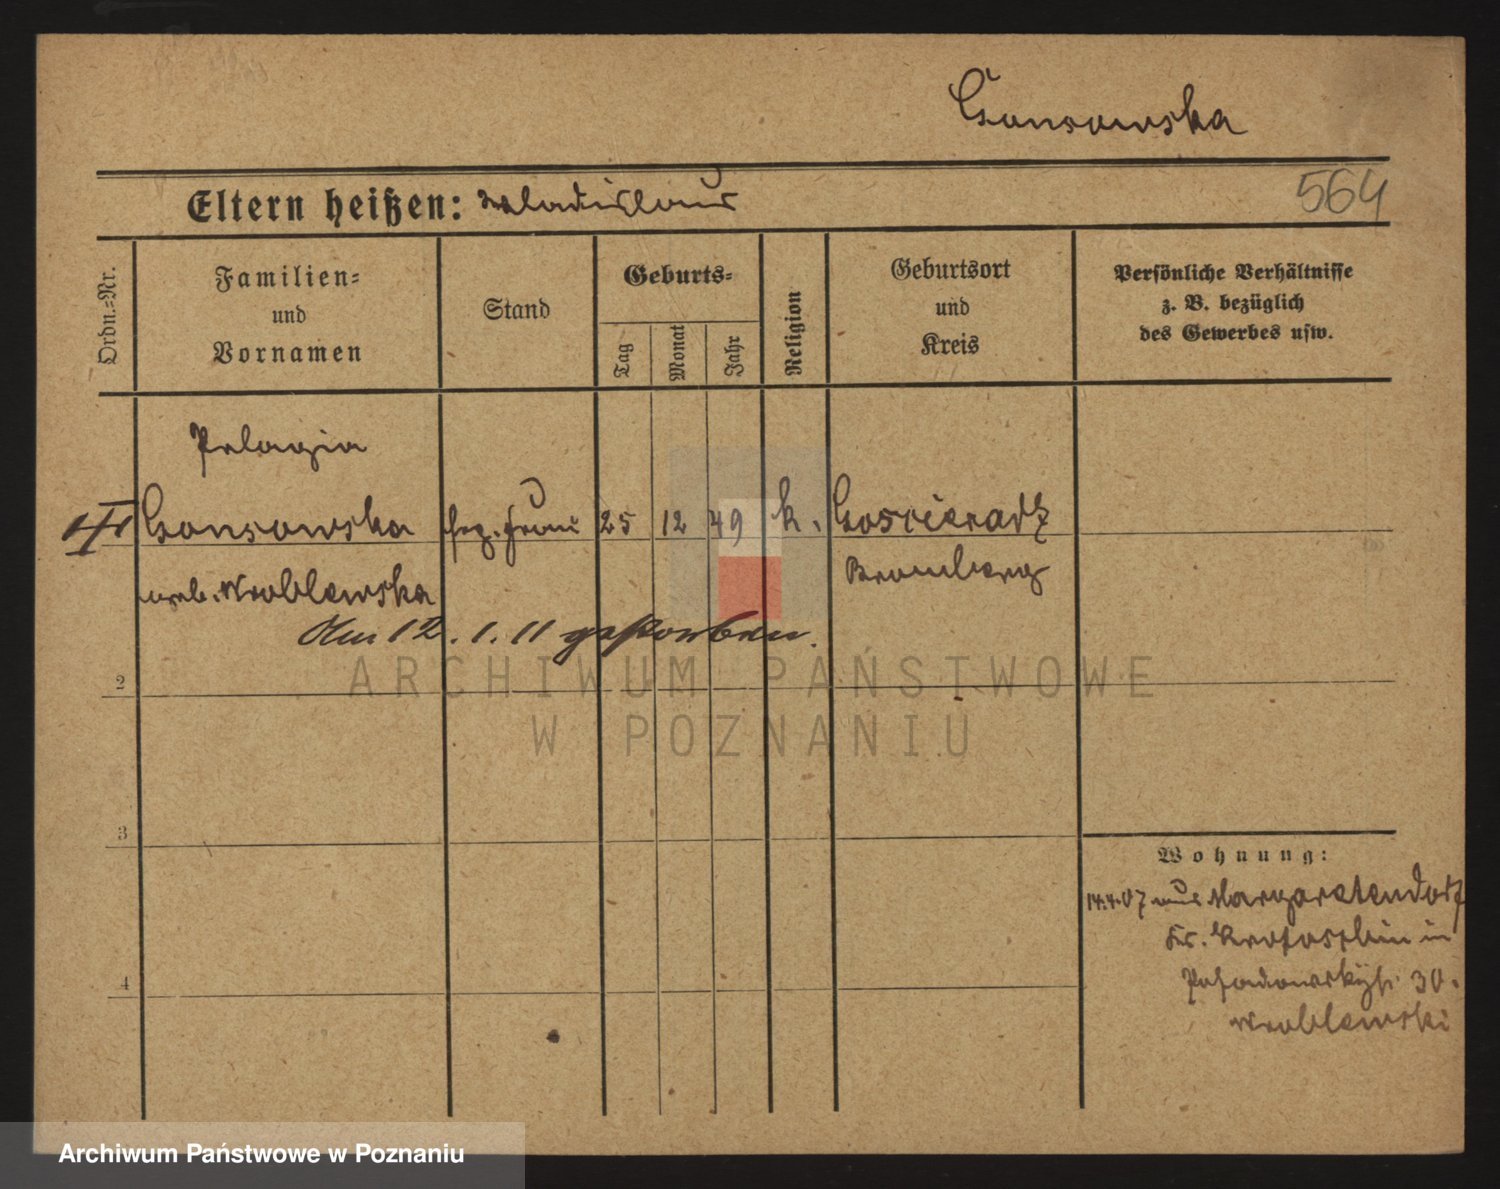 Gonsowska
Eltern heißen: Wladislaus
564
Ordn.=Nr.
Familien=
und
Vornamen
Stand
Geburts=
Tag
Monat
Jahr
Religion
Geburtsort
und
Kreis
Persönliche Verhältnisse
z. B. bezüglich
des Gewerbes usw.
Pelagia
Gonsowska
frau 25 12 49 k. Goscieradz
geb. Wroblewska
Bromberg
Am 12. 1. 11 gestorben.
2
3
4
Wohnung:
14.4.07 aus Margaretendorf
Kr. Krotoschin in
Posadowskystr. 30.
Wroblewski
ARCHIWUM PAŃSTWOWE
W POZNANIU
Archiwum Państwowe w Poznaniu